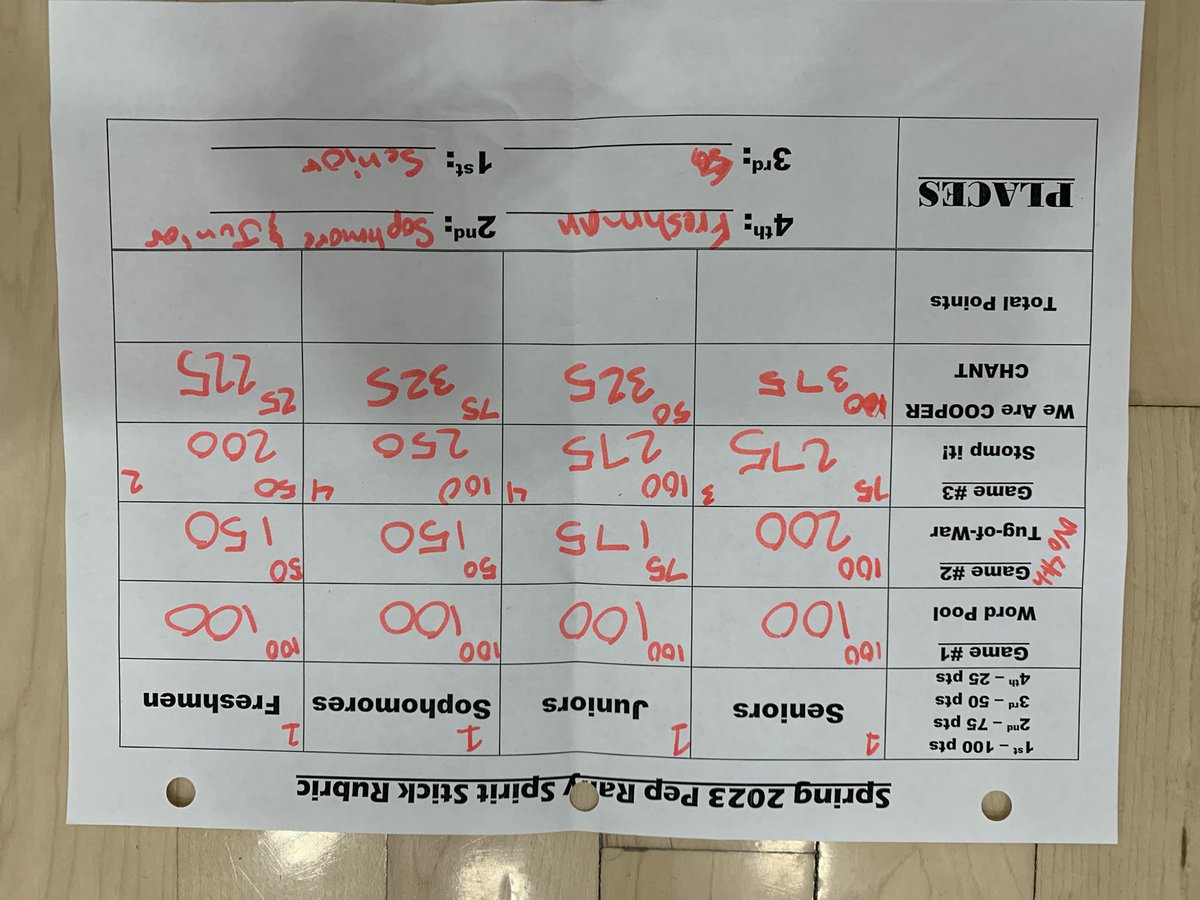 Spring 2023 Pep Rally Spirit Stick Rubric
1st – 100 pts
2nd – 75 pts
3rd – 50 pts
4th – 25 pts
Seniors 1
Juniors 1
Sophomores 1
Freshmen 1
Game #1
Word Pool
100 100
100 100
100 100
100 100
No 4th
Game #2
Tug-of-War
100 200
75 175
50 150
50 150
Game #3
Stomp it!
75 3 275
100 4 275
100 4 250
50 2 200
We Are COOPER
CHANT
100 375
50 325
75 325
25 225
Total Points
PLACES
4th: Freshman 2nd: Sophmore & Junior
3rd: 1st: Senior